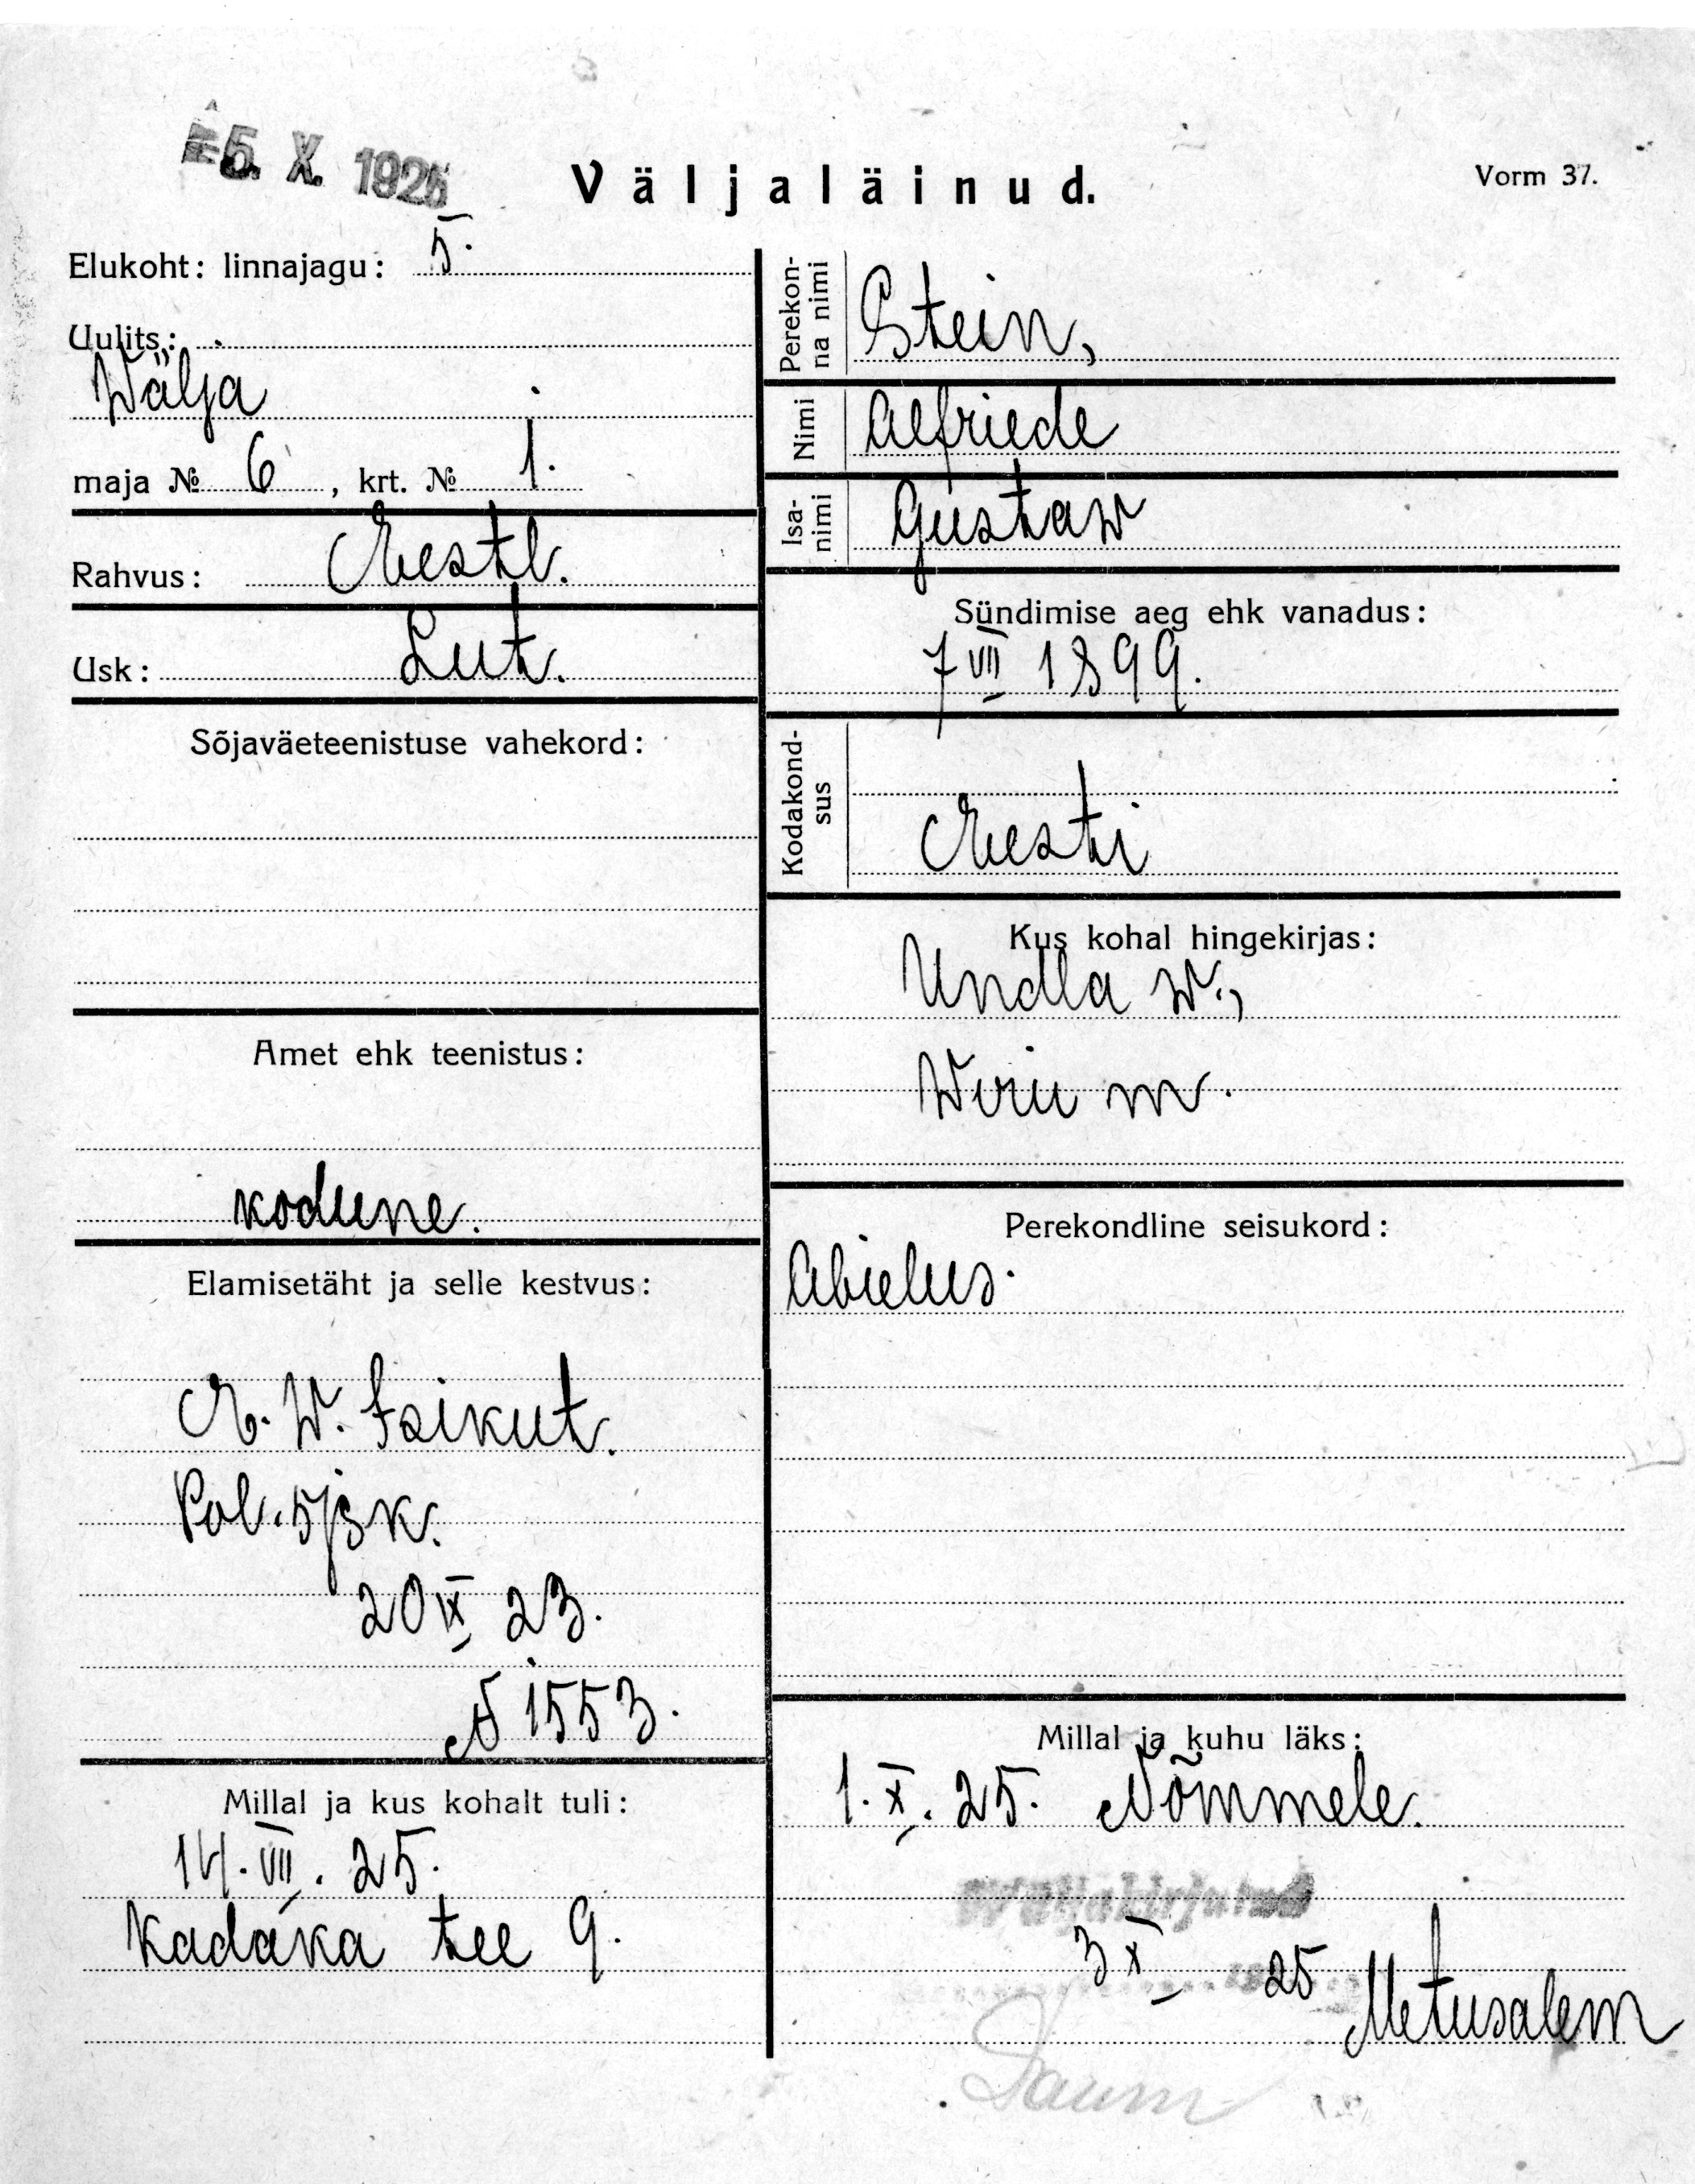 5. X. 1925
Väljaläinud.
Vorm 37.
Elukoht: linnajagu: 5.
Uulits:
Wälja
maja № 6, krt. № 1.
Rahvus: Eestl.
Usk: Lut.
Sõjaväeteenistuse vahekord:
Amet ehk teenistus:
kodune.
Elamisetäht ja selle kestvus:
E. W. Isikut.
Pol. 5/jsk.
20 IX 23.
№ 1553.
Millal ja kus kohalt tuli:
14. VII. 25.
Kadaka tee 9.
Perekonna nimi
Stein,
Nimi
Alfriede
Isanimi
Gustaw
Sündimise aeg ehk vanadus:
7 VII 1899.
Kodakondsus
Eesti
Kus kohal hingekirjas:
Undla w.,
Wiru m.
Perekondline seisukord:
Abielus.
Millal ja kuhu läks:
1. X. 25. Nõmmele.
Wäljakirjutud
3 X 25
Metusalem